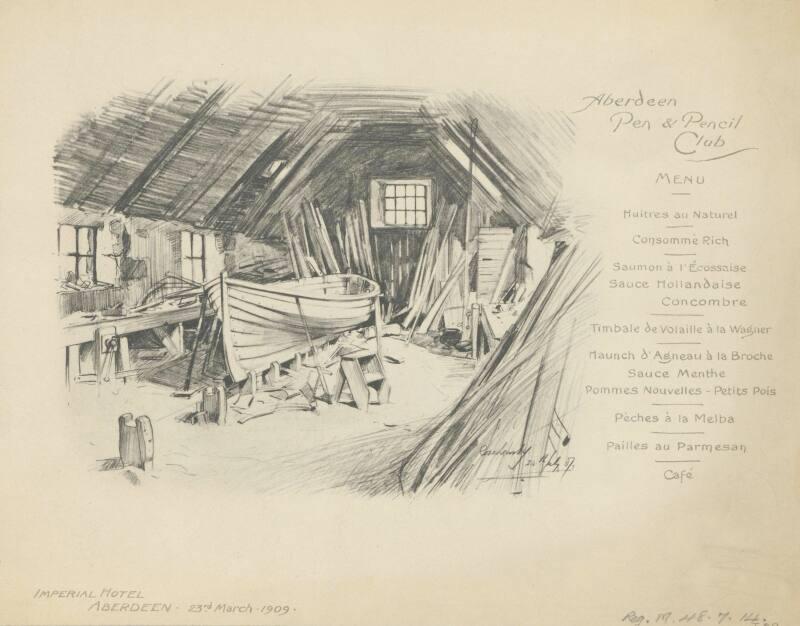 Aberdeen
Pen & Pencil
Club
MENU
Huitres au Naturel
Consommé Rich
Saumon à l'Écossaise
Sauce Hollandaise
Concombre
Timbale de Volaille à la Wagner
Haunch d'Agneau à la Broche
Sauce Menthe
Pommes Nouvelles - Petits Pois
Pèches à la Melba
Pailles au Parmesan
Café
IMPERIAL HOTEL
ABERDEEN · 23rd March · 1909 ·
Reg. M. 48. 7. 14.